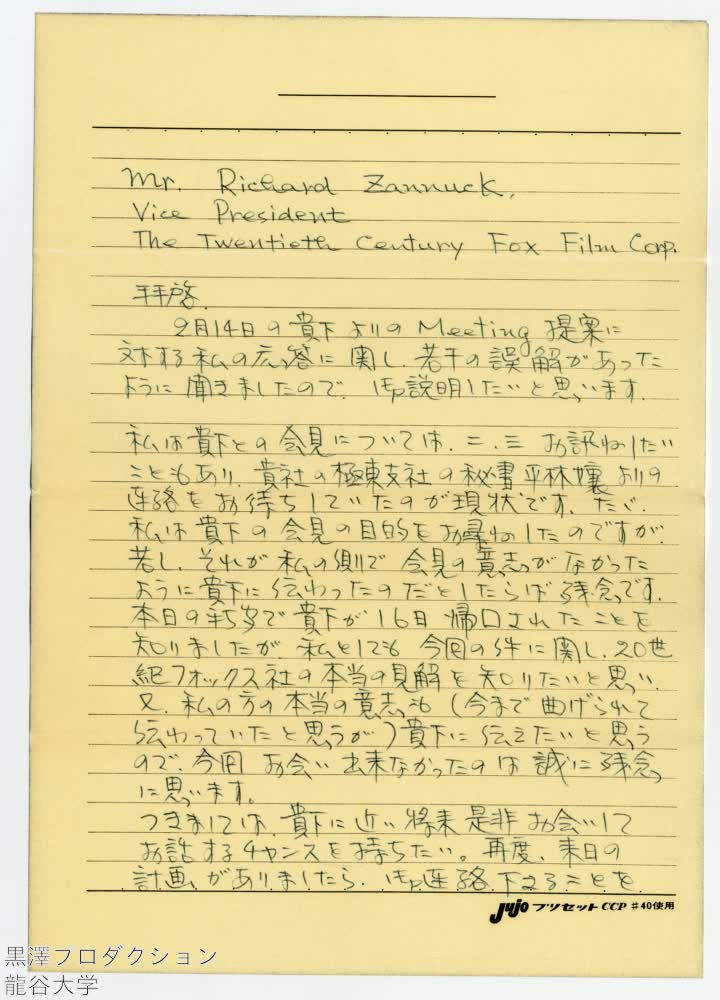 Mr. Richard Zannuck,
Vice President
The Twentieth Century Fox Film Corp.
拝啓
2月14日の貴下よりのMeeting提案に
対する私の応答に関し、若干の誤解があった
ように聞きましたので、御説明したいと思います。
私は貴下との会見については、二、三お訊ねしたい
こともあり、貴社の極東支社の秘書平林嬢よりの
連絡をお待ちしていたのが現状です。ただ、
私は貴下の会見の目的をお尋ねしたのですが、
若し、それが私の側で会見の意志がなかった
ように貴下に伝わったのだとしたらば残念です。
本日の で貴下が16日帰国されたことを
知りましたが、私としても今回の件に関し、20世
紀フォックス社の本当の見解を知りたいと思い、
又、私の方の本当の意志も(今まで曲げられて
伝わっていたと思うが)貴下に伝えたいと思う
ので、今回お会い出来なかったのは誠に残念
に思います。
つきましては、貴下に近い将来是非お会いして
お話するチャンスを持ちたい。再度、来日の
計画がありましたら、御連絡下さることを
Jujo プリセットCCP #40使用
黒澤プロダクション
龍谷大学